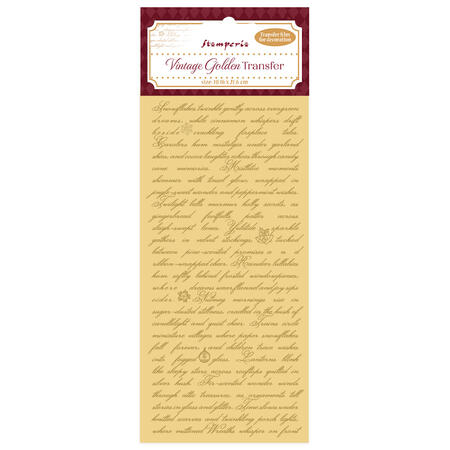 Stamperia
Transfer film
for decoration
Vintage Golden Transfer
size 10.16 x 21.6 cm
Snowflakes twinkle gently across evergreen
dreams, while cinnamon whispers drift
beside crackling fireplace tales.
Carolers hum nostalgia under garland
skies, and cocoa laughter echoes through candy
cane memories. Mistletoe moments
shimmer with tinsel glow, wrapped in
jingle-sweet wonder and peppermint wishes.
Twilight bells murmur holly secrets, as
gingerbread footfalls patter across
sleigh-swept lanes. Yuletide sparkle
gathers in velvet stockings, tucked
between pine-scented promises and
ribbon-wrapped cheer. Reindeer lullabies
hum softly behind frosted windowpanes,
where dreams wear flannel and joy sips
cider. Nutmeg mornings rise in
sugar-dusted stillness, cradled in the hush of
candlelight and quiet cheer. Trains circle
miniature villages where paper snowflakes
fall forever, and children trace wishes
onto fogged glass. Lanterns blink
like sleepy stars across rooftops quilted in
silver hush. Fir-scented wonder winds
through attic treasures, as ornaments tell
stories in glass and glitter. Time slows under
knitted scarves and twinkling porch lights,
where mittened Wreaths whisper on front